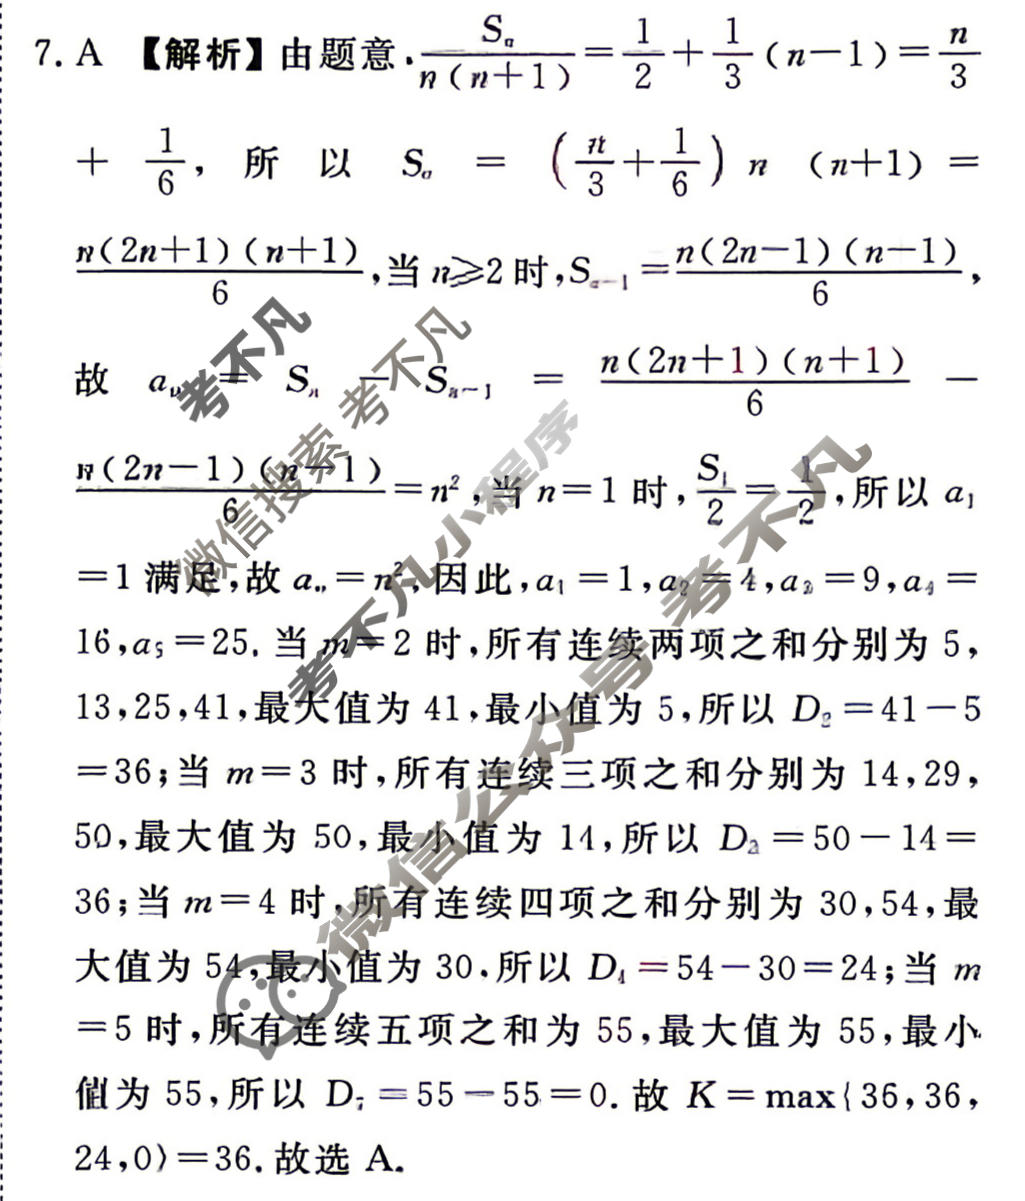 7. A 【解析】由题意,S_n/n(n+1)=1/2+1/3(n-1)=n/3
+1/6,所以 S_n=(n/3+1/6)n(n+1)=
n(2n+1)(n+1)/6,当 n≥2 时,S_{n-1}=n(2n-1)(n-1)/6,
故 a_n=S_n-S_{n-1}=n(2n+1)(n+1)/6-
n(2n-1)(n-1)/6=n²,当 n=1 时,S₁/2=1/2,所以 a₁
=1 满足,故 a_n=n²,因此,a₁=1,a₂=4,a₃=9,a₄=
16,a₅=25. 当 m=2 时,所有连续两项之和分别为 5,
13,25,41,最大值为 41,最小值为 5,所以 D₂=41-5
=36;当 m=3 时,所有连续三项之和分别为 14,29,
50,最大值为 50,最小值为 14,所以 D₃=50-14=
36;当 m=4 时,所有连续四项之和分别为 30,54,最
大值为 54,最小值为 30,所以 D₄=54-30=24;当 m
=5 时,所有连续五项之和为 55,最大值为 55,最小
值为 55,所以 D₅=55-55=0. 故 K=max{36,36,
24,0}=36. 故选 A.
考不凡
微信搜索 考不凡
考不凡小程序
微信公众号 考不凡